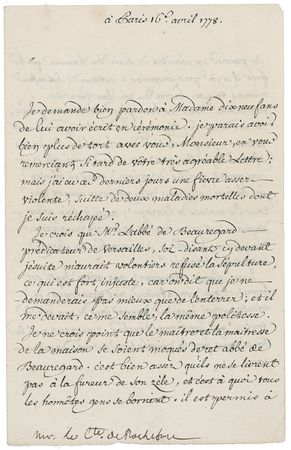 à Paris 16e. avril 1778.
Je demande bien pardon à Madame dixneufans
de lui avoir écrit en cérémonie. je parais avoir
bien plus de tort avec vous, Monsieur, en vous
remerciant si tard de votre très agréable Lettre;
mais j'ai eu ces derniers jours une fievre assez
violente, suitte de deux maladies mortelles dont
je suis réchapé.
Je crois que Mr. L'abbé de Beauregard
prédicateur de Versailles, soi disant cy devant
jésuite m'aurait volontiers refusé la sépulture,
ce qui est fort injuste, car on dit que je ne
demanderais pas mieux que de l'enterrer; et il
me devait, ce me semble, la même politesse.
Je ne crois point que le maitre et la maitresse
de la maison se soient moqués de cet abbé de
Beauregard. c'est bien assez qu'ils ne se livrent
pas à la fureur de son zèle, et c'est à quoi tous
les honnêtes gens se bornent. il est permis à
mr. le Cte. de Rochefort